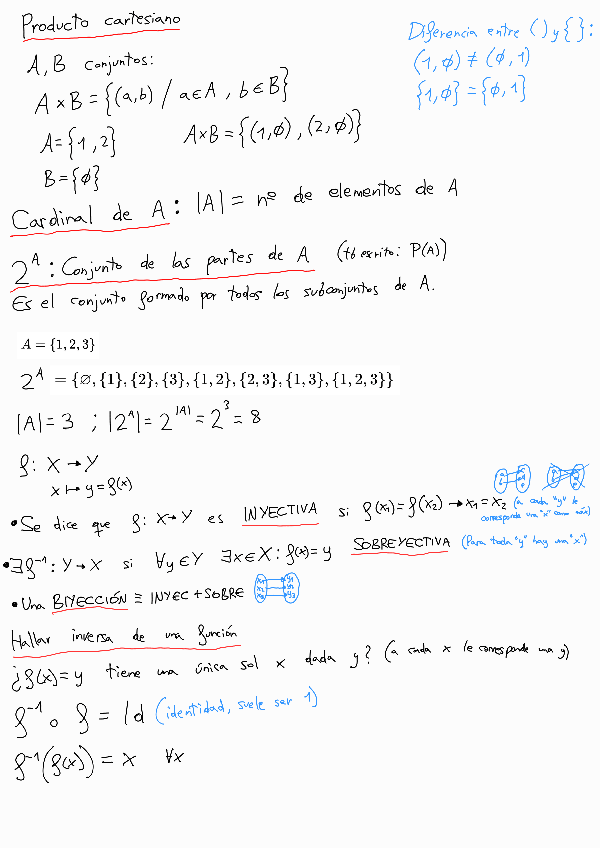 Producto cartesiano
Diferencia entre ( ) y { }:
(1, ∅) ≠ (∅, 1)
{1, ∅} = {∅, 1}
A, B conjuntos:
A × B = {(a,b) / a ∈ A , b ∈ B}
A = {1, 2}
A×B = {(1,∅) , (2,∅)}
B = {∅}
Cardinal de A : |A| = nº de elementos de A
2^A : Conjunto de las partes de A (tb escrito: P(A))
Es el conjunto formado por todos los subconjuntos de A.
A = {1, 2, 3}
2^A = {∅, {1}, {2}, {3}, {1, 2}, {2, 3}, {1, 3}, {1, 2, 3}}
|A| = 3 ; |2^A| = 2^|A| = 2^3 = 8
f: X → Y
x ↦ y = f(x)
• Se dice que f: X → Y es INYECTIVA si f(x₁) = f(x₂) → x₁ = x₂ (a cada "y" le
corresponde una "x" como máx)
• ∃f⁻¹: Y → X si ∀y ∈ Y ∃x ∈ X : f(x) = y SOBREYECTIVA (Para toda "y" hay una "x")
• Una BIYECCIÓN ≡ INYEC + SOBRE
x₁ y₁
x₂ y₂
x₃ y₃
Hallar inversa de una función
¿f(x) = y tiene una única sol x dada y? (a cada x le corresponde una y)
f⁻¹ ∘ f = Id (identidad, suele ser 1)
f⁻¹(f(x)) = x ∀x